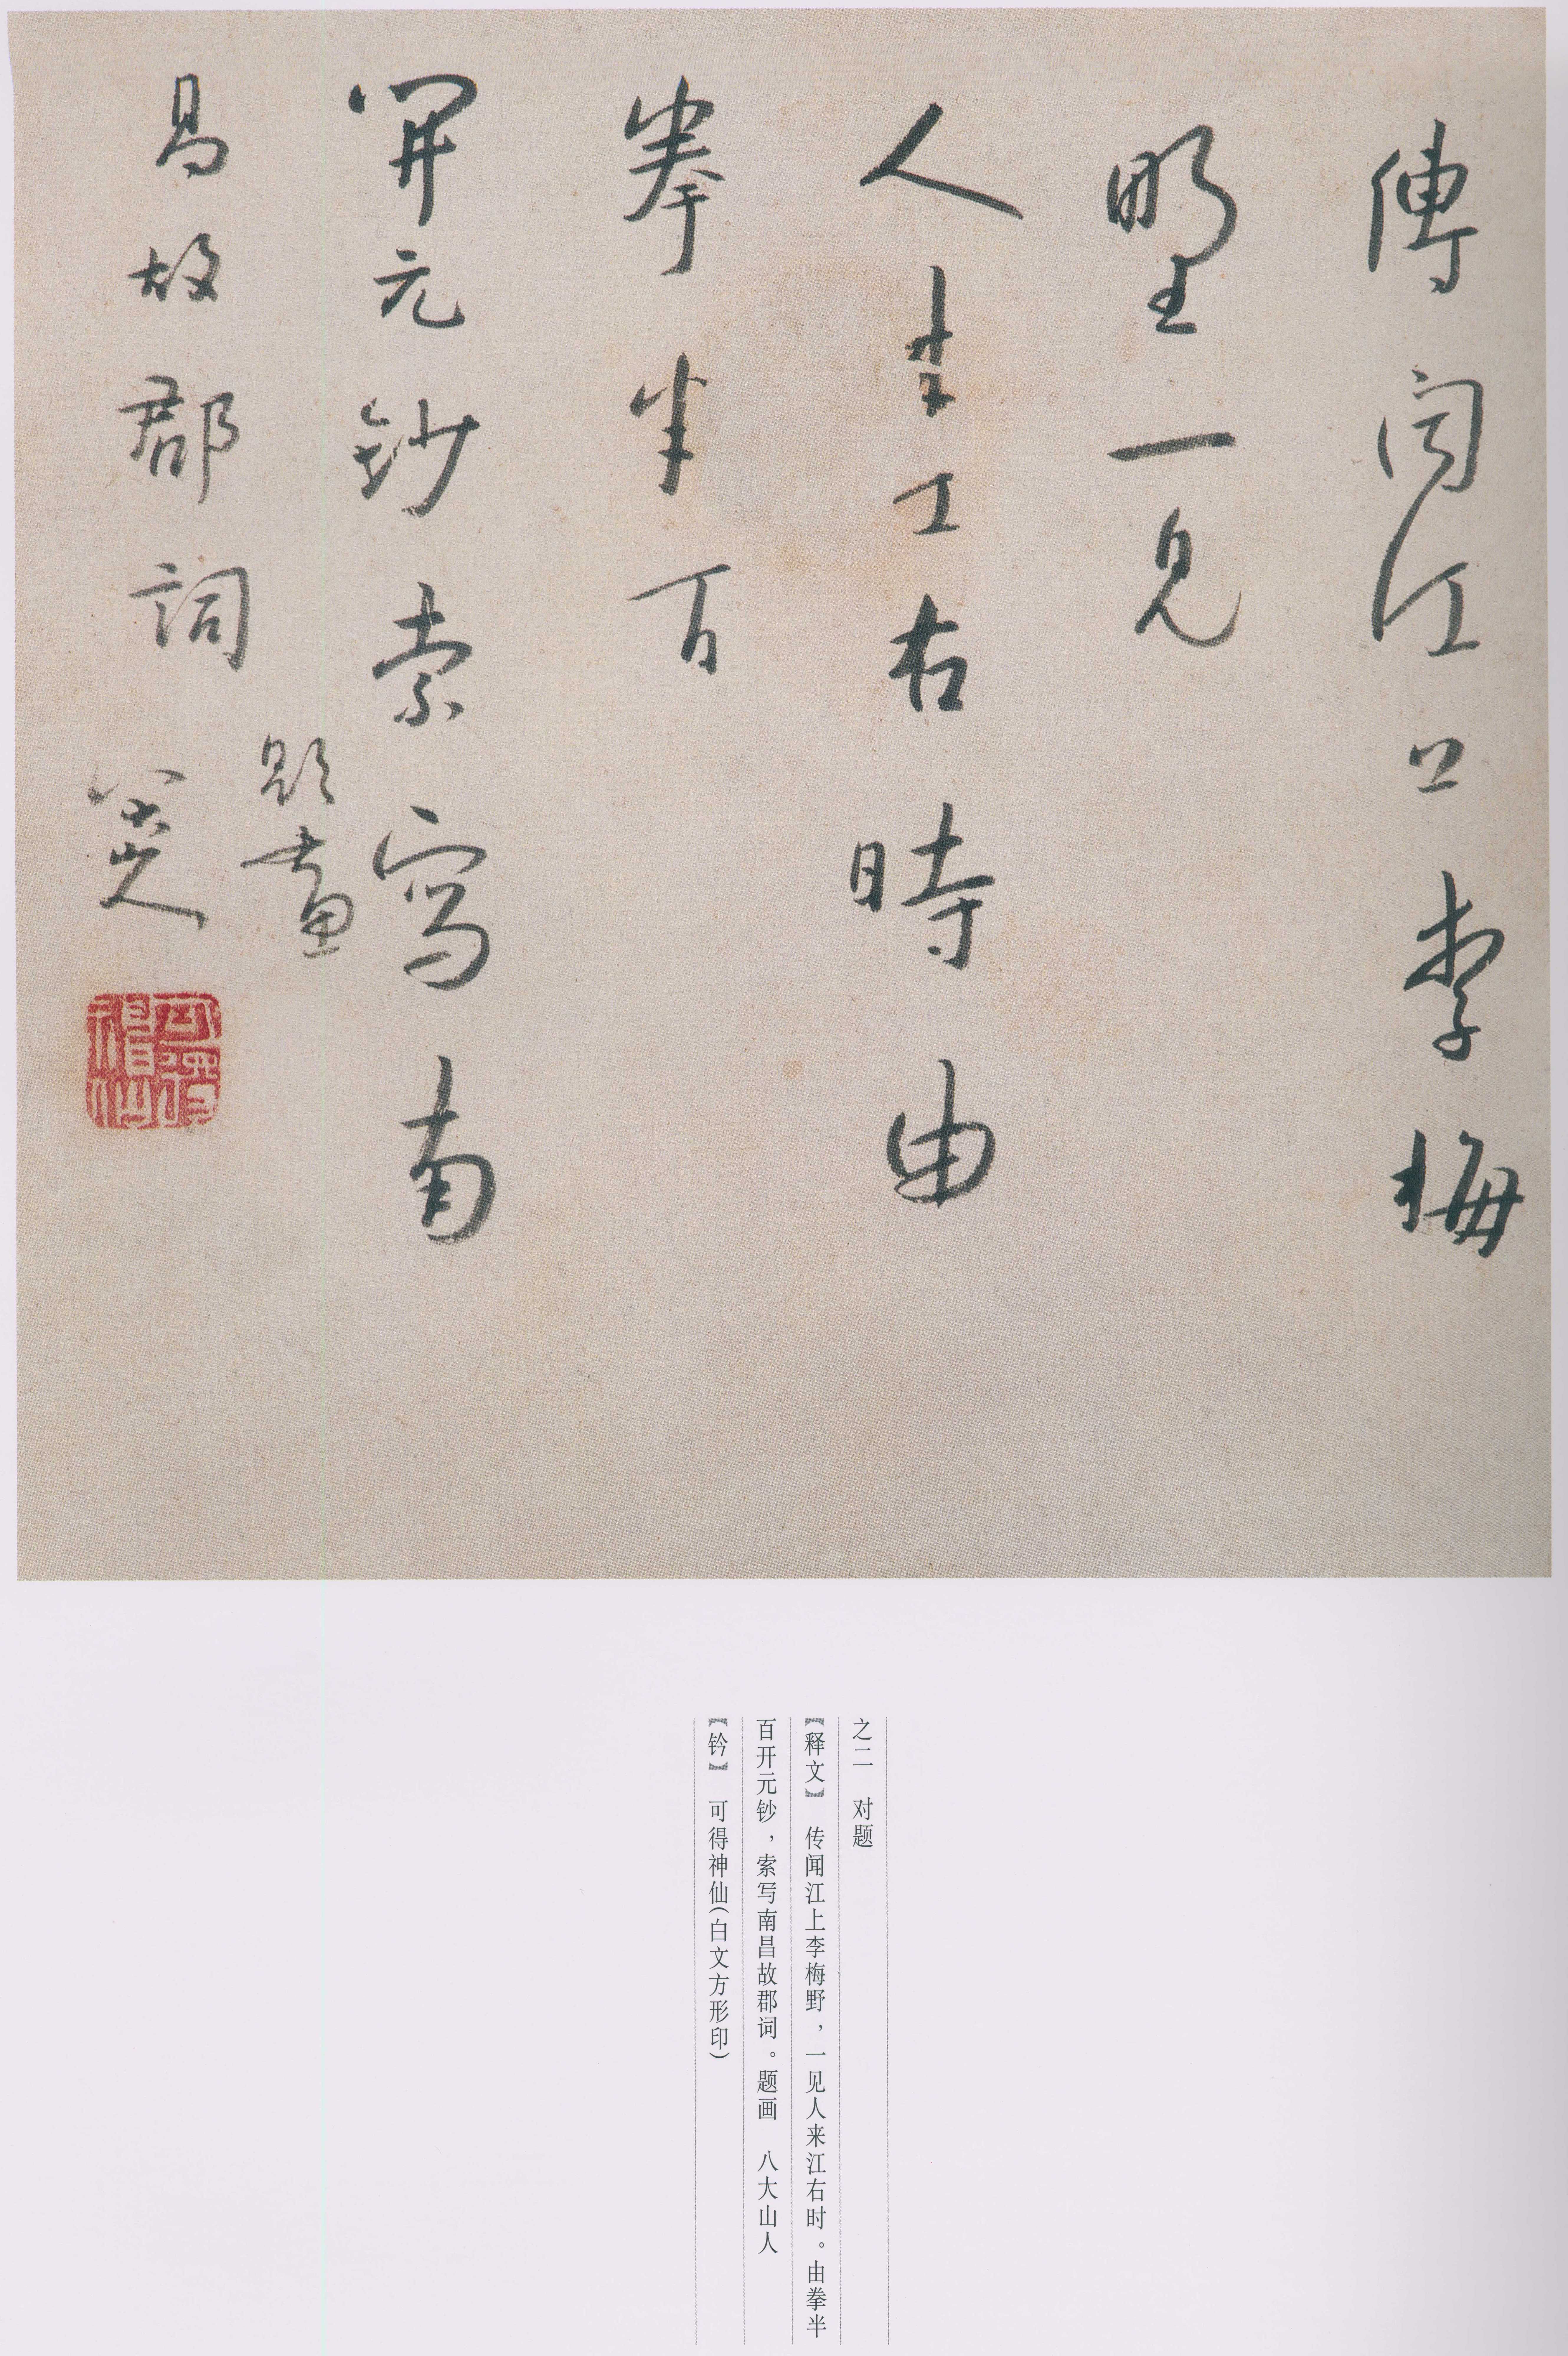 傳聞江上李梅
野一見
人來江右時由
拳半百
開元鈔索寫南
昌故郡詞
題畫
八大山人
可得神仙
之二　对题
【释文】　传闻江上李梅野，一见人来江右时。由拳半
百开元钞，索写南昌故郡词。题画　八大山人
【钤】　可得神仙（白文方形印）